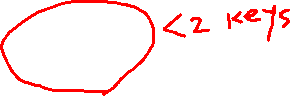 <2 keys